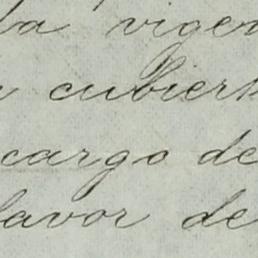 la vigen
cubiert
cargo de
favor de